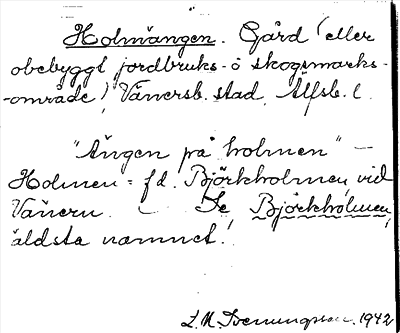 Holmängen. Gård (eller
obebyggt jordbruks- o skogsmarks-
-område) Vänersb. stad, Älfsb. l.
"Ängen på holmen" —
Holmen = f.d. Björkholmen vid
Vänern. — Se Björkholmen,
äldsta namnet!
L. M. Svenungsson. 1942